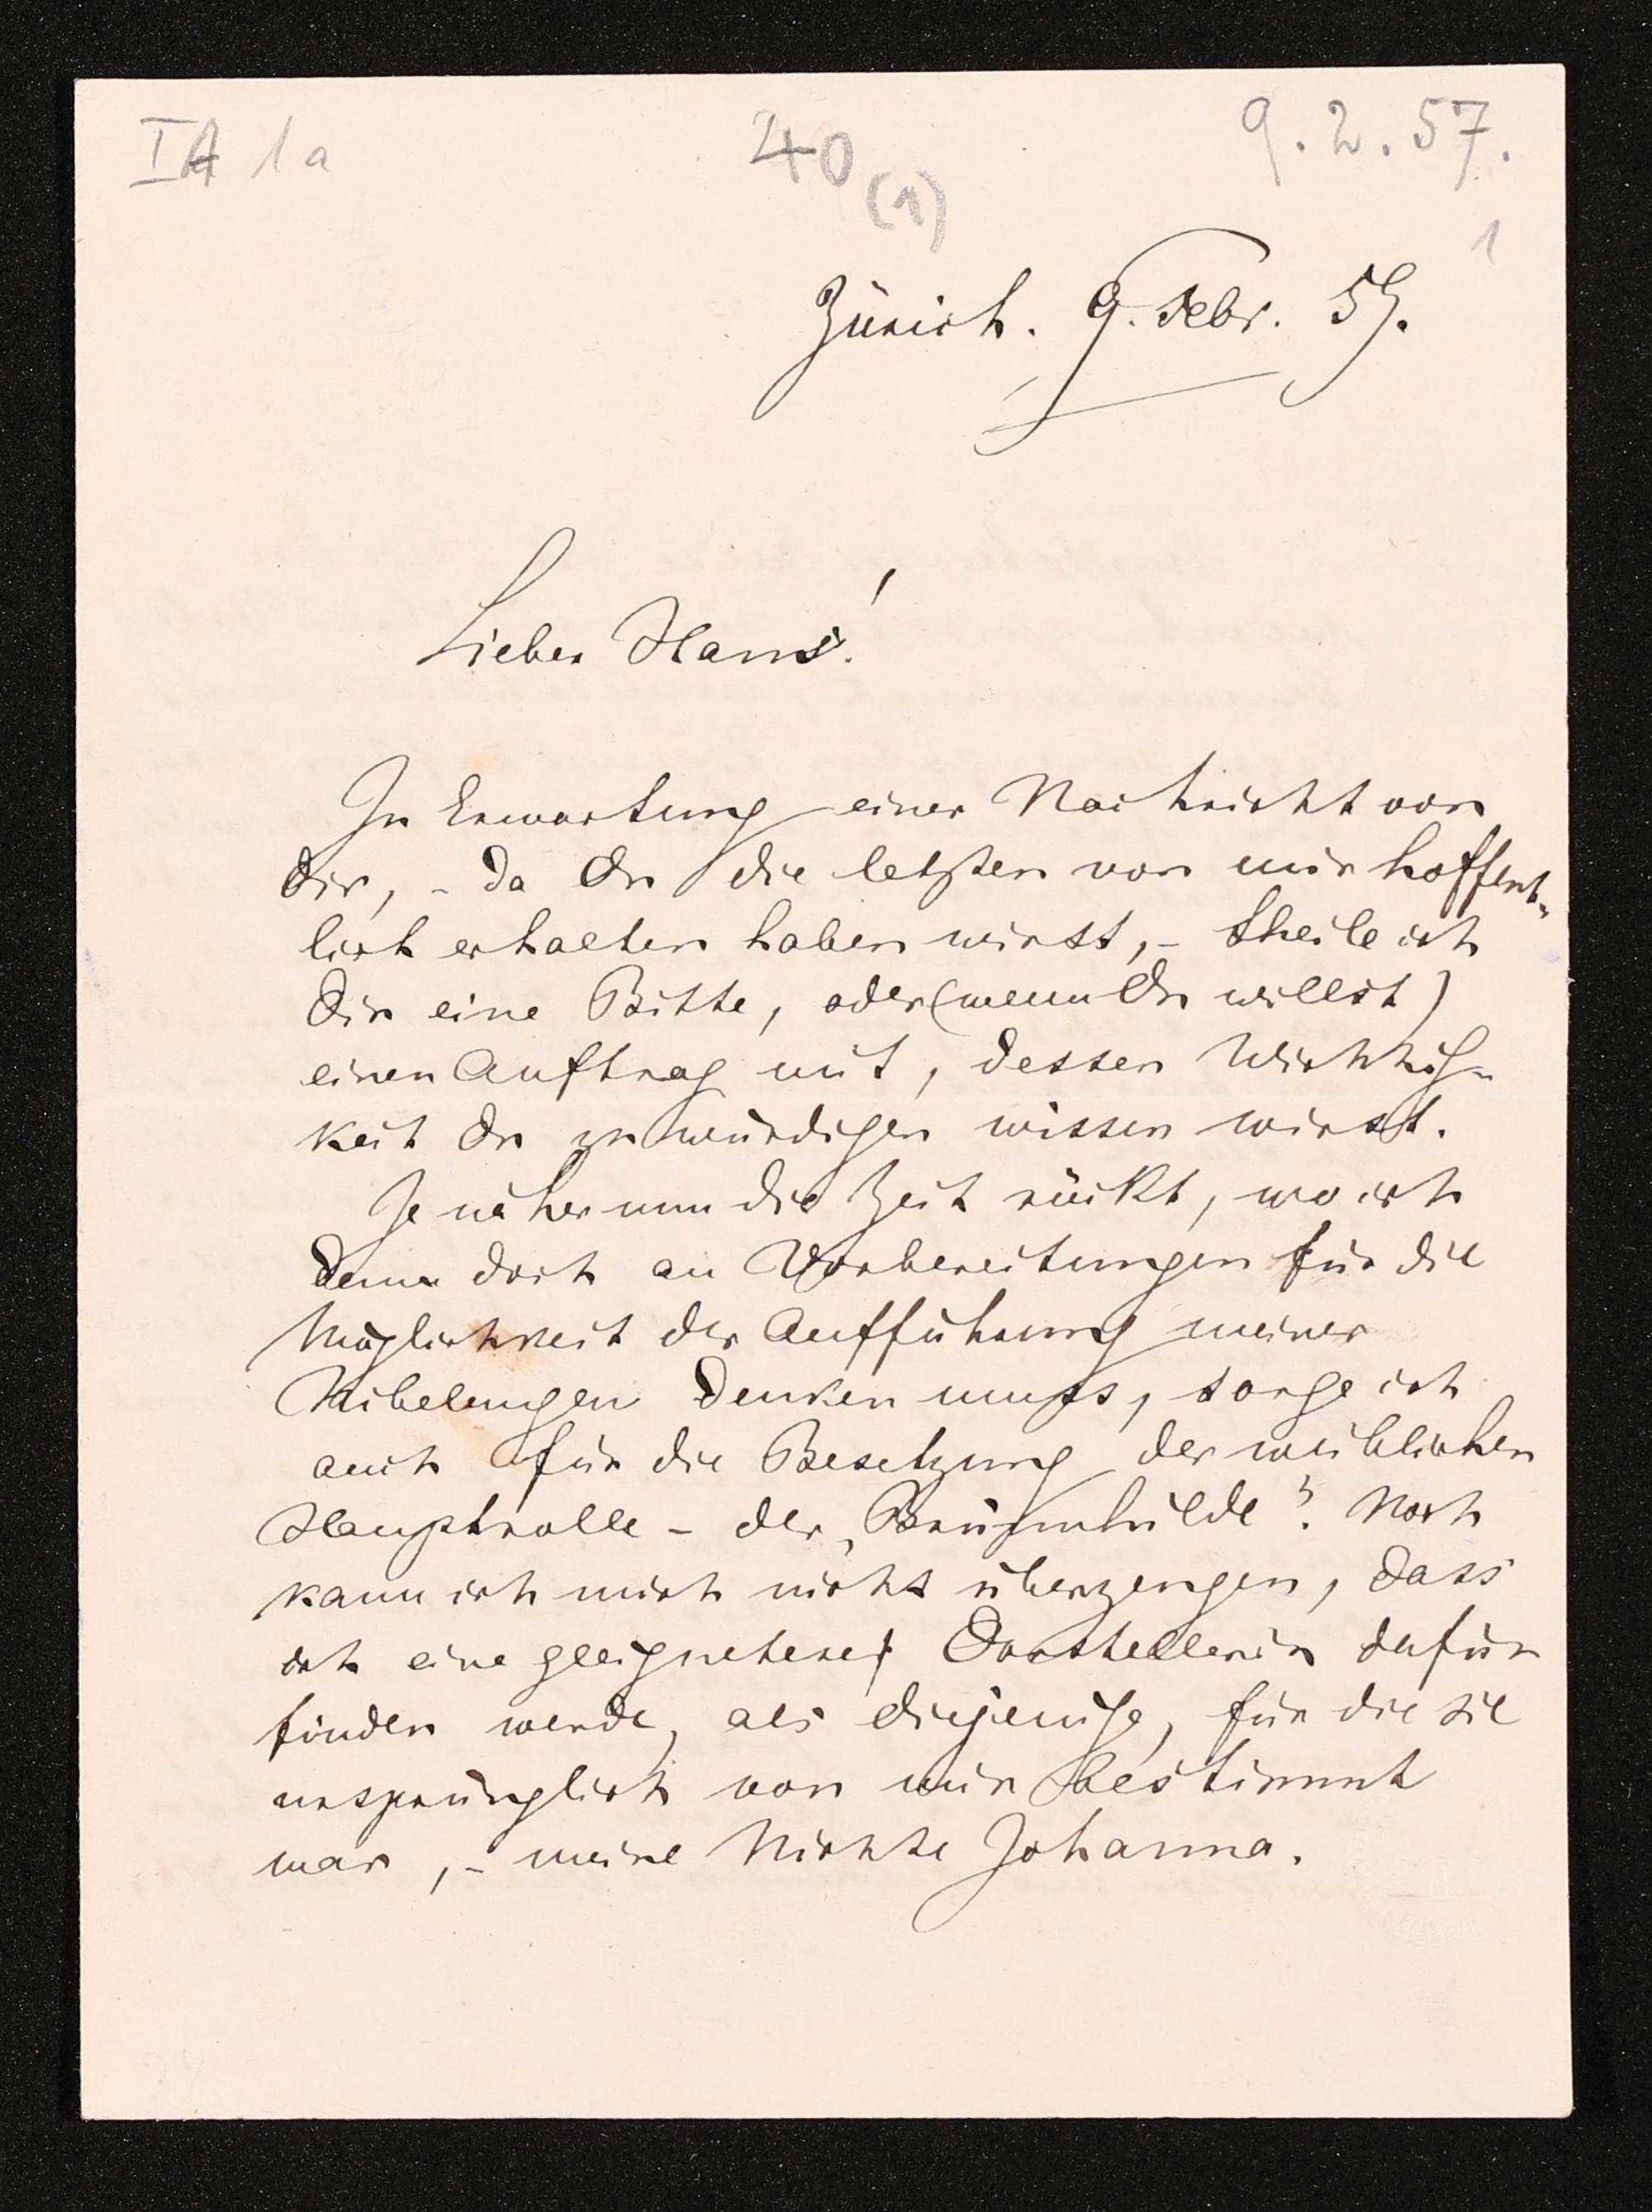 IA 1a
40
(1)
9.2.57.
1
Zürich. 9. Febr. 57.
Lieber Hans!
In Erwartung einer Nachricht von
Dir, - da Du die letzten von mir hoffent-
lich erhalten haben wirst, - theile ich
Dir eine Bitte, oder (wenn Du willst)
einen Auftrag mit, dessen Wichtig-
keit Du zu würdigen wissen wirst.
Je näher nun die Zeit rückt, wo ich
denn doch an Vorbereitungen für die
Möglichkeit der Aufführung meiner
Nibelungen denken muss, sorge ich
auch für die Besetzung der weiblichen
Hauptrolle - der „Brünnhilde". Noch
kann ich mich nicht überzeugen, dass
ich eine geeignetere Darstellerin dafür
finden werde, als diejenige, für die sie
ursprünglich von mir bestimmt
war, - meine Nichte Johanna.